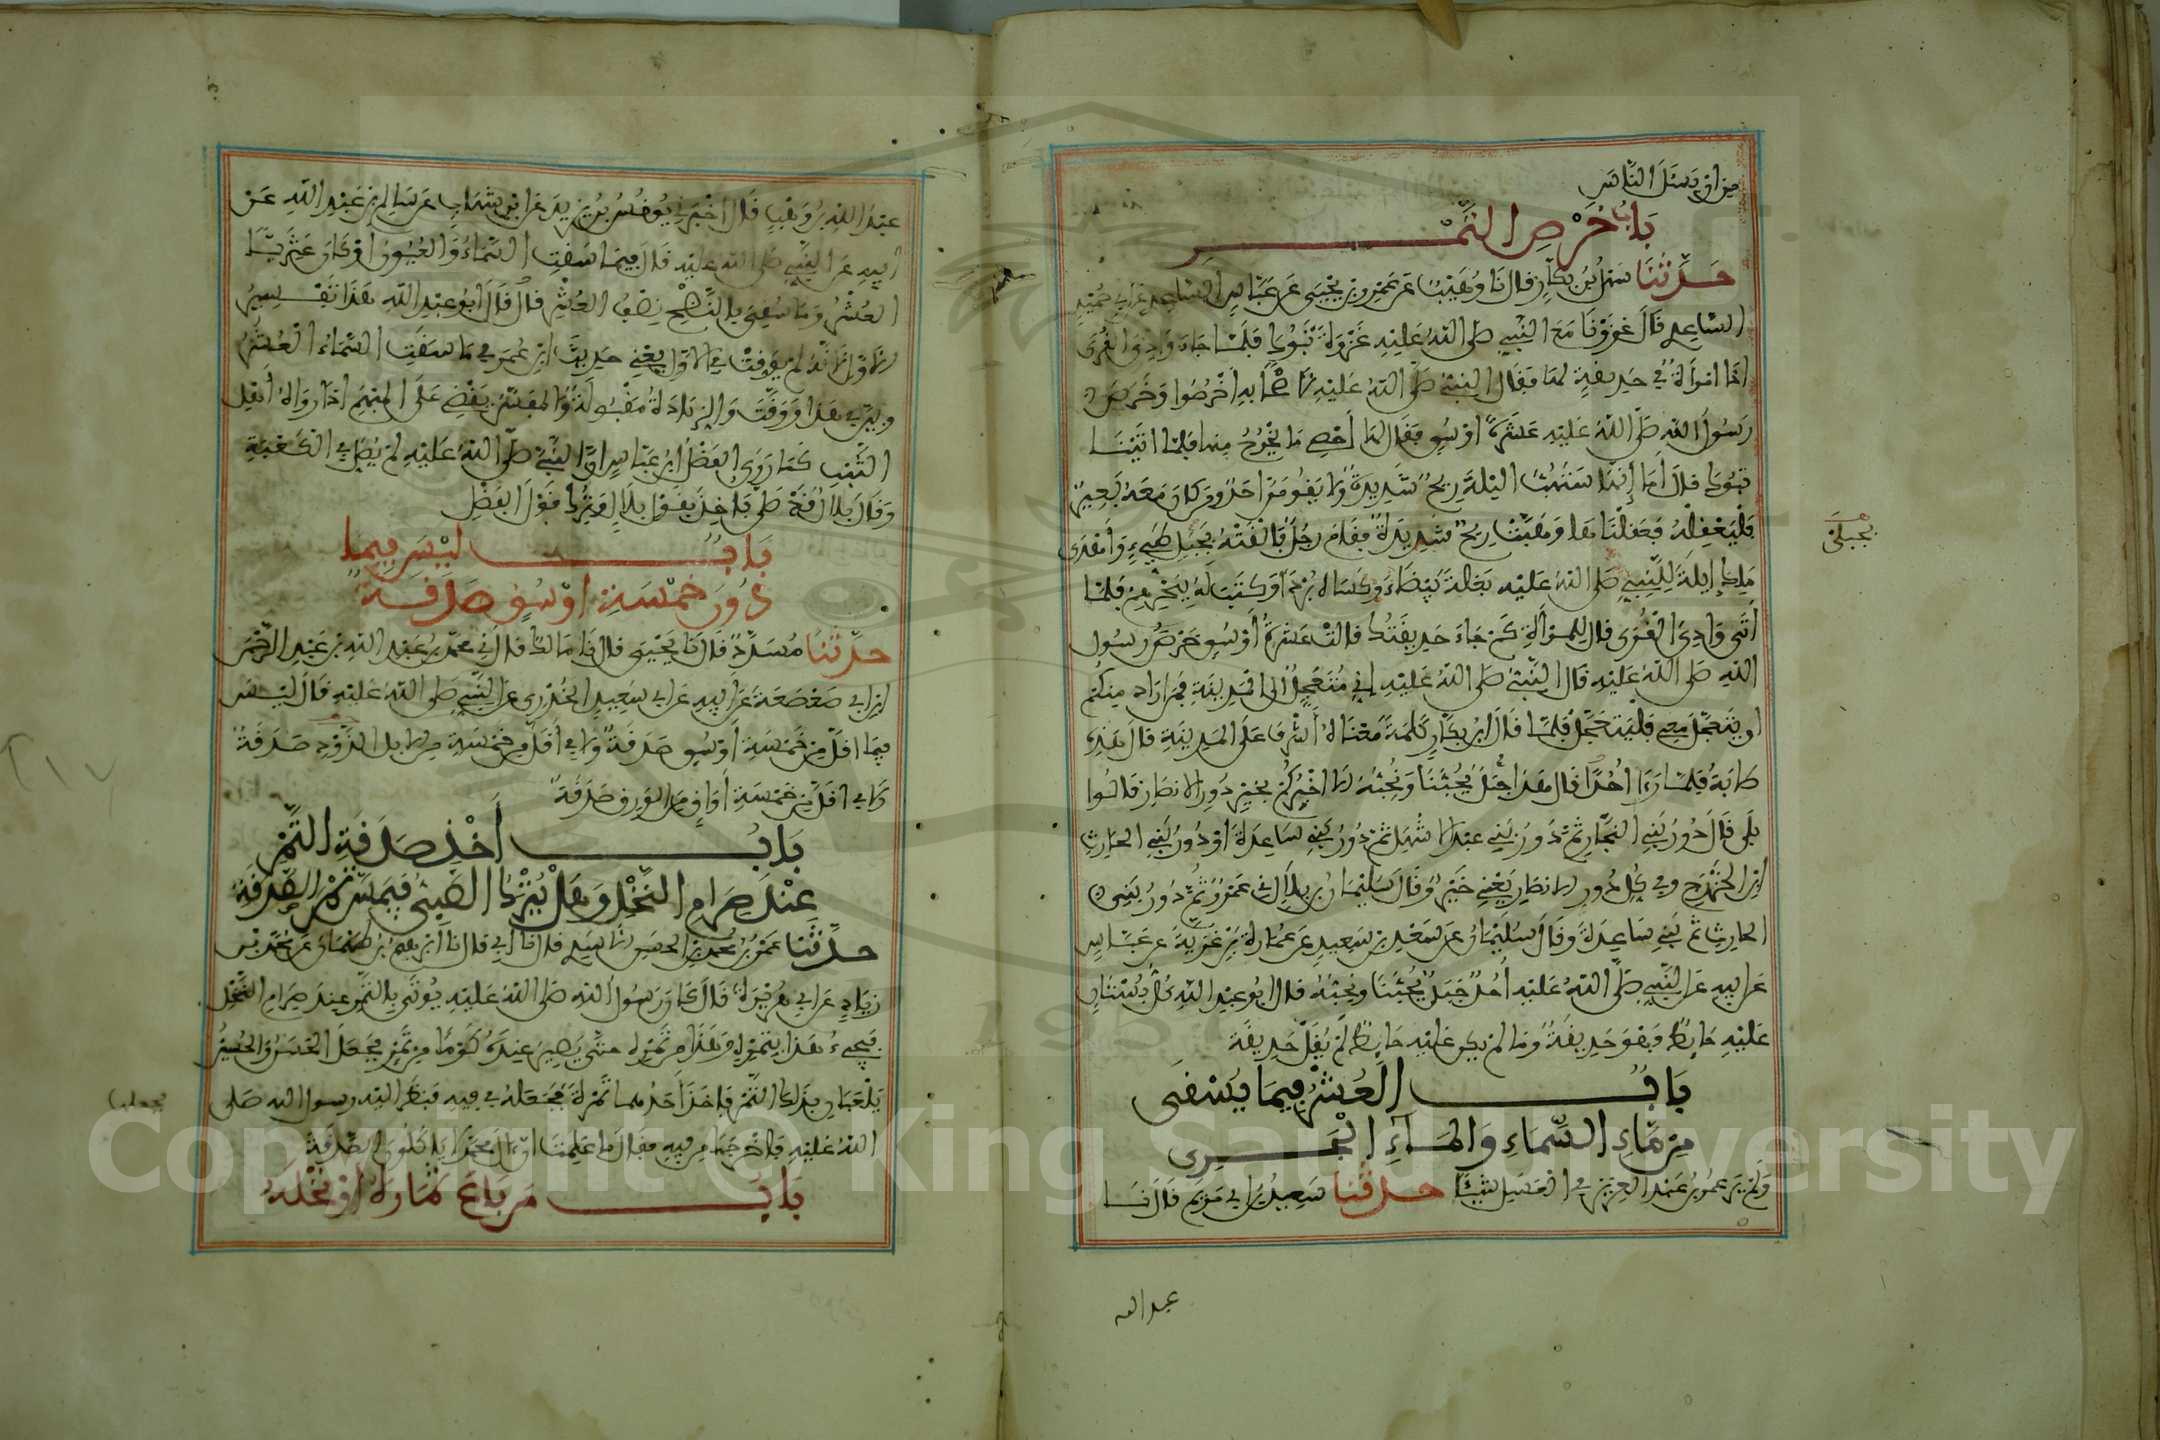 من ان يسئل الناس
باب خرص التمر
حدثنا سهل بن بكار قال نا وهيب عن عمرو بن يحيى عن عباس الساعدي عن ابي حميد
الساعدي قال غزونا مع النبي صلى الله عليه غزوة تبوك فلما جاء وادي القرى
اذا امراة في حديقة لها فقال النبي صلى الله عليه لاصحابه اخرصوا وخرص
رسول الله صلى الله عليه عشرة اوسق فقال لها أحصي ما يخرج منها فلما اتينا
تبوك قال أما إنها ستهب الليلة ريح شديدة ولا يقومن احد ومن كان معه بعير
فليعقله فعقلناها وهبت ريح شديدة فقام رجل فالقته بجبل طيء وأهدى
بجبلي
ملك إيلة للنبي صلى الله عليه بغلة بيضاء وكساه بردا وكتب له ببحرهم فلما
أتى وادي القرى قال للمرأة كم جاء حديقتك قالت عشرة أوسق خرص رسول
الله صلى الله عليه فقال النبي صلى الله عليه اني متعجل الى المدينة فمن اراد منكم
ان يتعجل معي فليتعجل فلما قال ابن بكار كلمة معناها أشرف على المدينة قال هذه
طابة فلما رءا أحدا قال هذا جبل يحبنا ونحبه الا اخبركم بخير دور الانصار قالوا
بلى قال دور بني النجار ثم دور بني عبد الاشهل ثم دور بني ساعدة او دور بني الحارث
ابن الخزرج وفي كل دور الانصار يعني خيرا وقال سليمان بن بلال ني عمرو ثم دور بني
الحارث ثم بني ساعدة وقال سليمان عن سعد بن سعيد عن عمارة بن غزية عن عباس
عن ابيه عن النبي صلى الله عليه أحد جبل يحبنا ونحبه قال ابو عبد الله كل بستان
عليه حائط فهو حديقة وما لم يكن عليه حائط لم يقل حديقة
باب العشر فيما يسقى
من ماء السماء والماء الجري
ولم ير عمر بن عبد العزيز في العسل شيئا حدثنا سعيد بن ابي مريم قال نا
عبد الله
عبد الله بن وهب قال اخبرني يونس بن يزيد عن ابن شهاب عن سالم بن عبد الله عن
ابيه عن النبي صلى الله عليه قال فيما سقت السماء والعيون او كان عثريا
العشر وما سقي بالنضح نصف العشر قال قال ابو عبد الله هذا تفسير
الاول لانه لم يوقت في الاول يعني حديث ابن عمر في ما سقت السماء العشر
وبين في هذا ووقت والزيادة مقبولة والمفسر يقضي على المبهم اذا رواه أهل
الثبت كما روى الفضل ابن عباس ان النبي صلى الله عليه لم يصل في الكعبة
وقال بلال قد صلى فاخذ بقول بلال وترك قول الفضل
باب ليس فيما
دون خمسة اوسق صدقة
حدثنا مسدد قال نا يحيى قال نا مالك قال ني محمد بن عبد الله بن عبد الرحمن
ابن ابي صعصعة عن ابيه عن ابي سعيد الخدري عن النبي صلى الله عليه قال ليس
فيما اقل من خمسة أوسق صدقة ولا في اقل من خمسة من الابل الذود صدقة
ولا في اقل من خمسة أواق من الورق صدقة
باب أخذ صدقة التمر
عند صرام النخل وهل يترك الصبي فيمس تمر الصدقة
حدثنا عمر بن محمد بن الحسن الاسدي قال نا أبي قال نا ابرهيم بن طهمان عن محمد بن
زياد عن ابي هريرة قال كان رسول الله صلى الله عليه يوتى بالتمر عند صرام النخل
فيجيء هذا بتمره وهذا من تمره حتى يصير عنده كوما من تمر فجعل الحسن والحسين
يلعبان بذلك التمر فاخذ أحدهما تمرة فجعله في فيه فنظر اليه رسول الله صلى
فجعلها
الله عليه فاخرجها من فيه فقال اما علمت ان آل محمد لا ياكلون الصدقة
باب من باع ثماره أو نخله